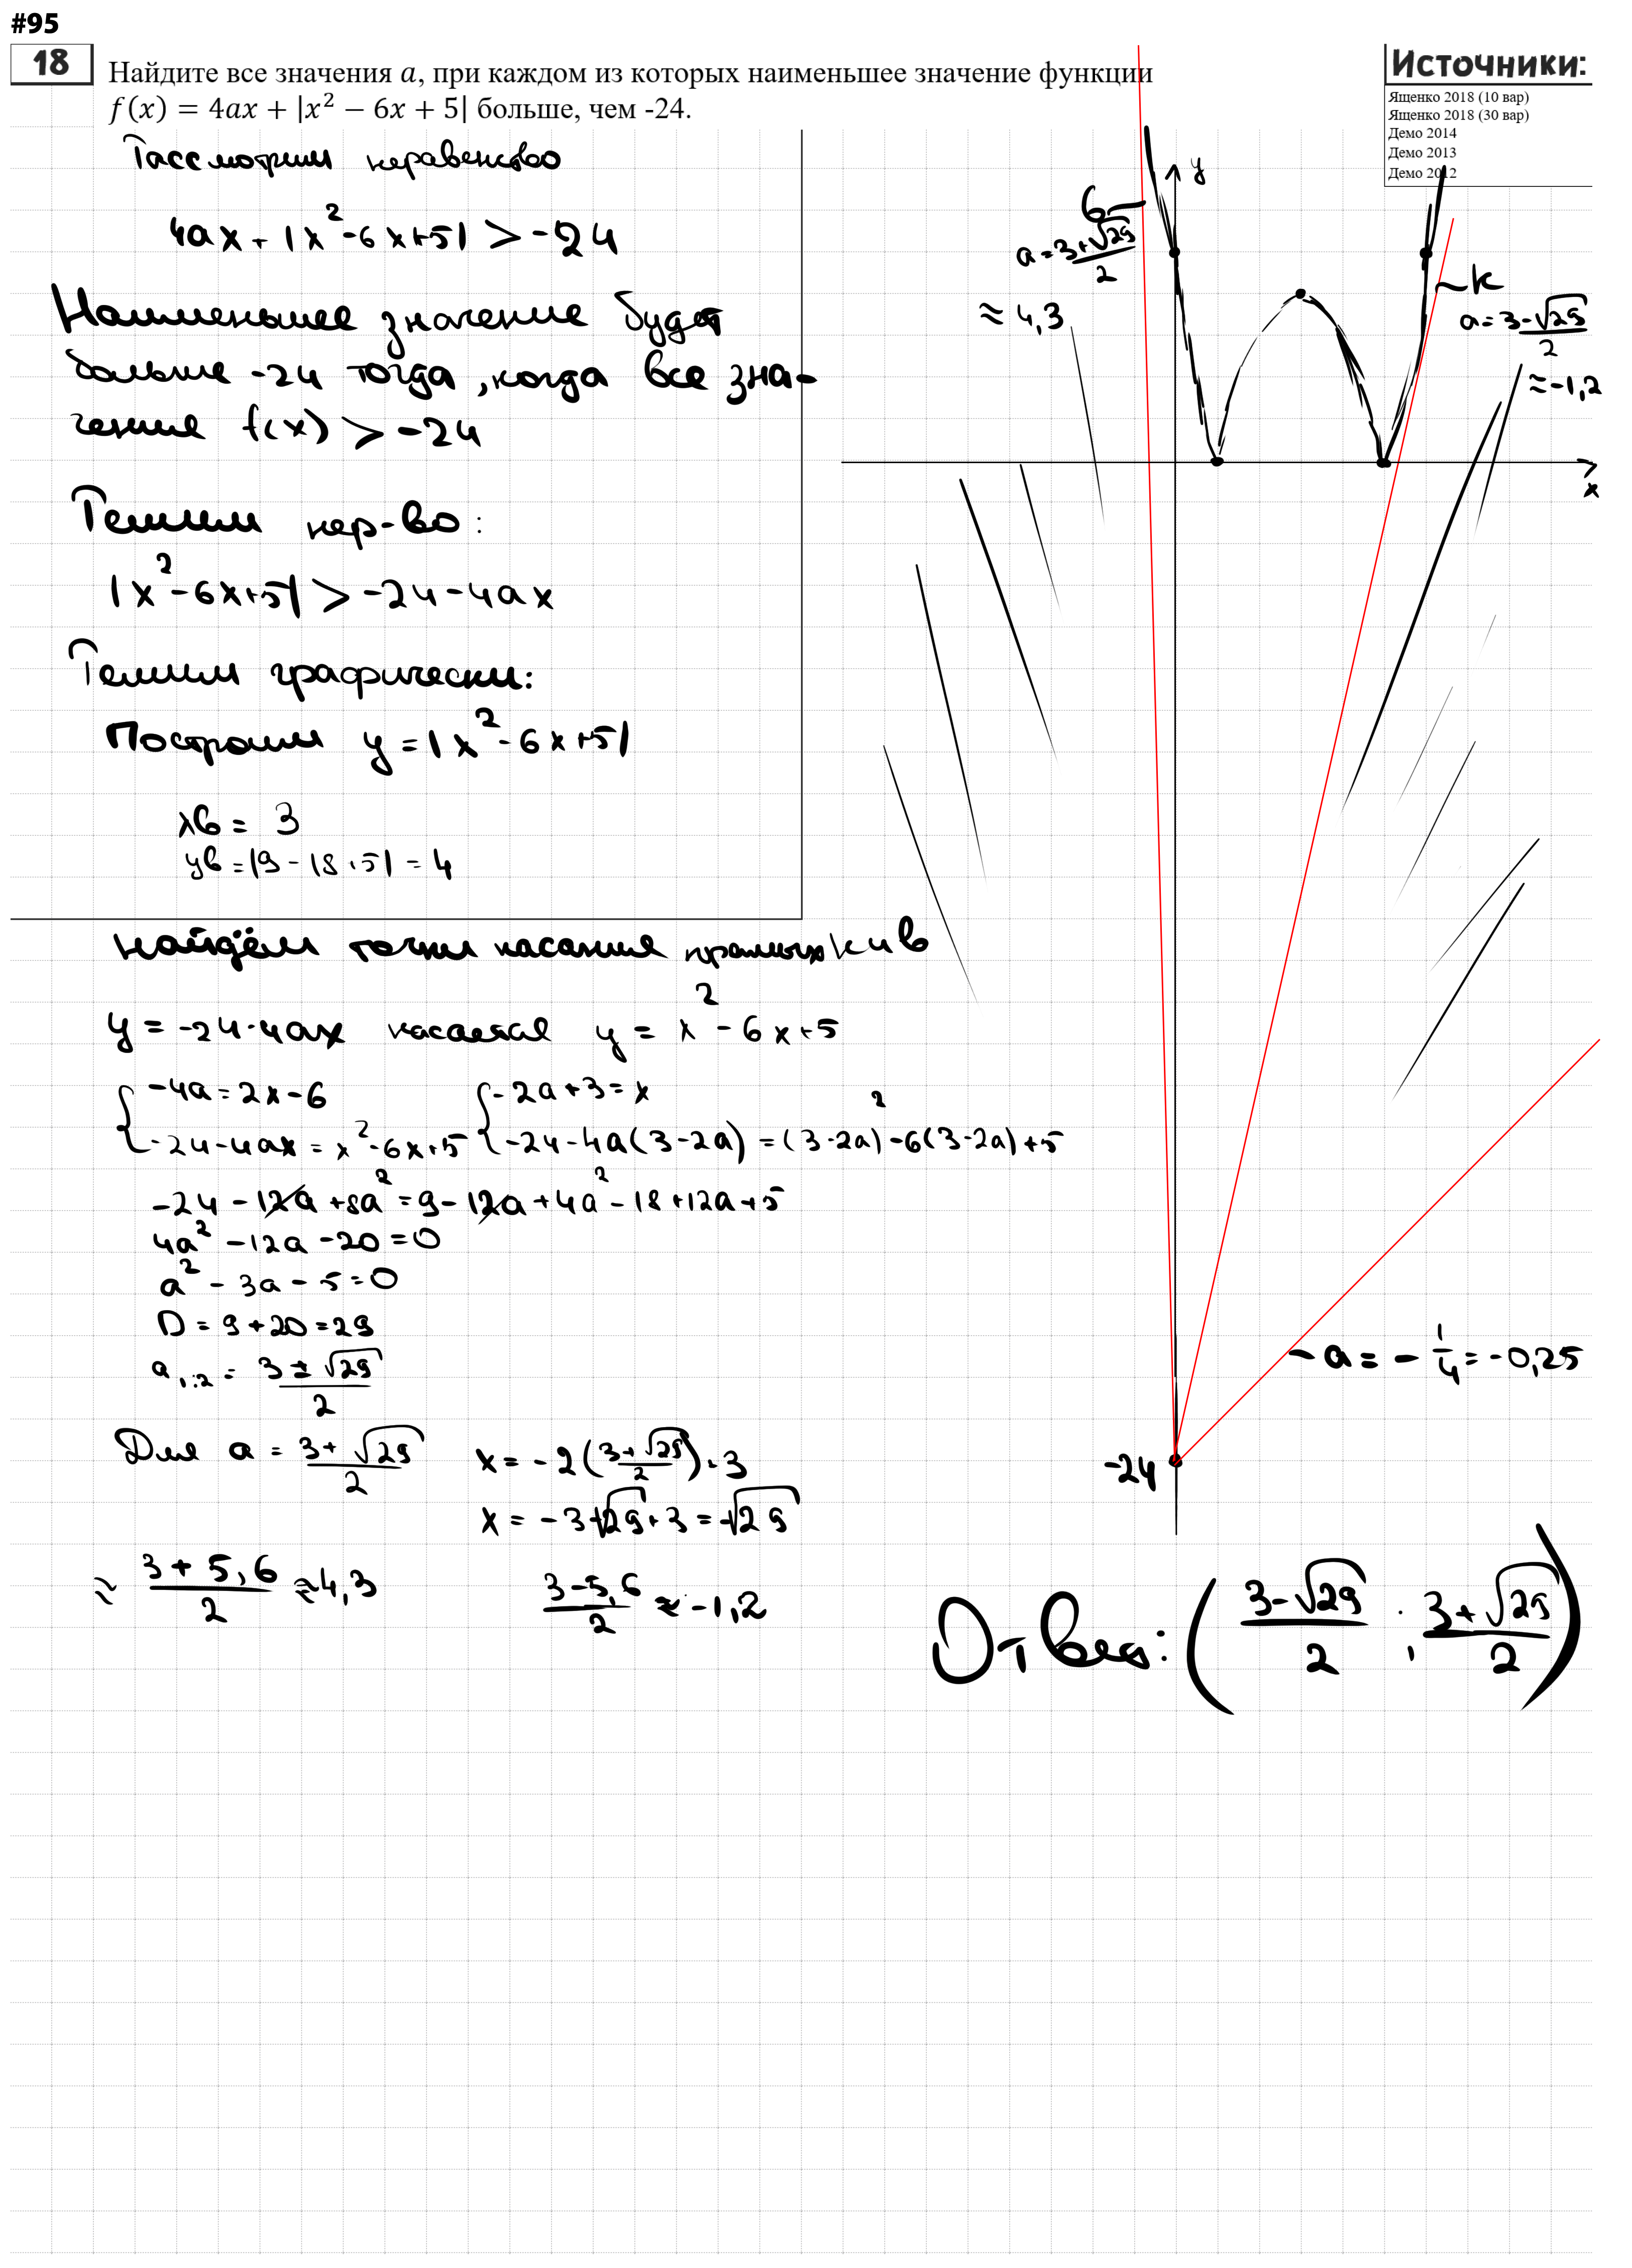 #95
18
Найдите все значения a, при каждом из которых наименьшее значение функции
f(x) = 4ax + |x² − 6x + 5| больше, чем -24.
Источники:
Ященко 2018 (10 вар)
Ященко 2018 (30 вар)
Демо 2014
Демо 2013
Демо 2012
Рассмотрим неравенство
4ax + |x² - 6x + 5| > -24
Наименьшее значение будет
больше -24 тогда, когда все зна-
чения f(x) > -24
Решим нер-во:
|x² - 6x + 5| > -24 - 4ax
Решим графически:
Построим y = |x² - 6x + 5|
xв = 3
yв = |9 - 18 + 5| = 4
y
x
в
a = (3+√29)/2
≈ 4,3
k
a = (3-√29)/2
≈ -1,2
- a = - 1/4 = -0,25
-24
найдём точки касания прямых k и в
y = -24 - 4ax касается y = x² - 6x + 5
{ -4a = 2x - 6 { -2a + 3 = x
-24 - 4ax = x² - 6x + 5 { -24 - 4a(3 - 2a) = (3 - 2a)² - 6(3 - 2a) + 5
-24 - 12a + 8a² = 9 - 12a + 4a² - 18 + 12a + 5
4a² - 12a - 20 = 0
a² - 3a - 5 = 0
D = 9 + 20 = 29
a₁,₂ = (3 ± √29)/2
Для a = (3+√29)/2 x = -2((3+√29)/2) + 3
x = -3 - √29 + 3 = -√29
≈ (3 + 5,6)/2 ≈ 4,3 (3 - 5,6)/2 ≈ -1,2
Ответ: ((3-√29)/2 ; (3+√29)/2)